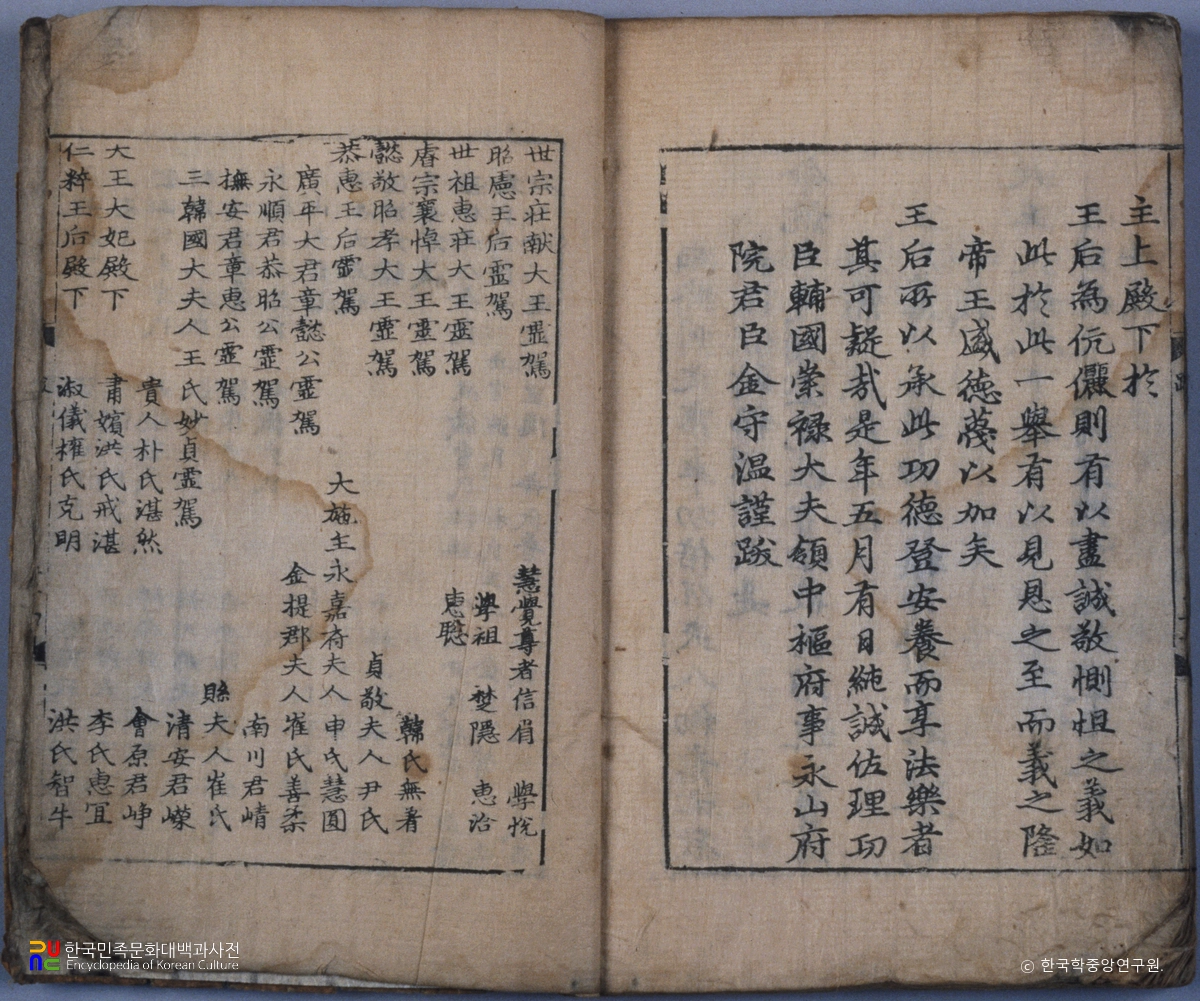 主上殿下於
王后為伉儷則有以盡誠敬惻怛之義如
此於此一舉有以見恩之至而義之隆
帝王盛德蔑以加矣
王后所以承此功德登安養而享法樂者
其可疑哉是年五月有日純誠佐理功
臣輔國崇祿大夫領中樞府事永山府
院君臣金守溫謹跋
世宗莊献大王靈駕 慧覺尊者信眉 學悅
昭憲王后靈駕 學祖 楚隱 惠洽
世祖惠莊大王靈駕 惠聡
睿宗襄悼大王靈駕 韓氏無着
懿敬昭孝大王靈駕 貞敬夫人尹氏
恭惠王后靈駕 大施主永嘉府夫人申氏慧圓
廣平大君章懿公靈駕 金提郡夫人崔氏善柔
永順君恭昭公靈駕 南川君崝
撫安君章惠公靈駕 縣夫人崔氏
三韓國大夫人王氏妙貞靈駕 清安君嶸
貴人朴氏湛然 會原君崢
大王大妃殿下 肅嬪洪氏戒湛 李氏惠宜
仁粹王后殿下 淑儀權氏克明 洪氏智牛
한국민족문화대백과사전
Encyclopedia of Korean Culture
© 한국학중앙연구원.